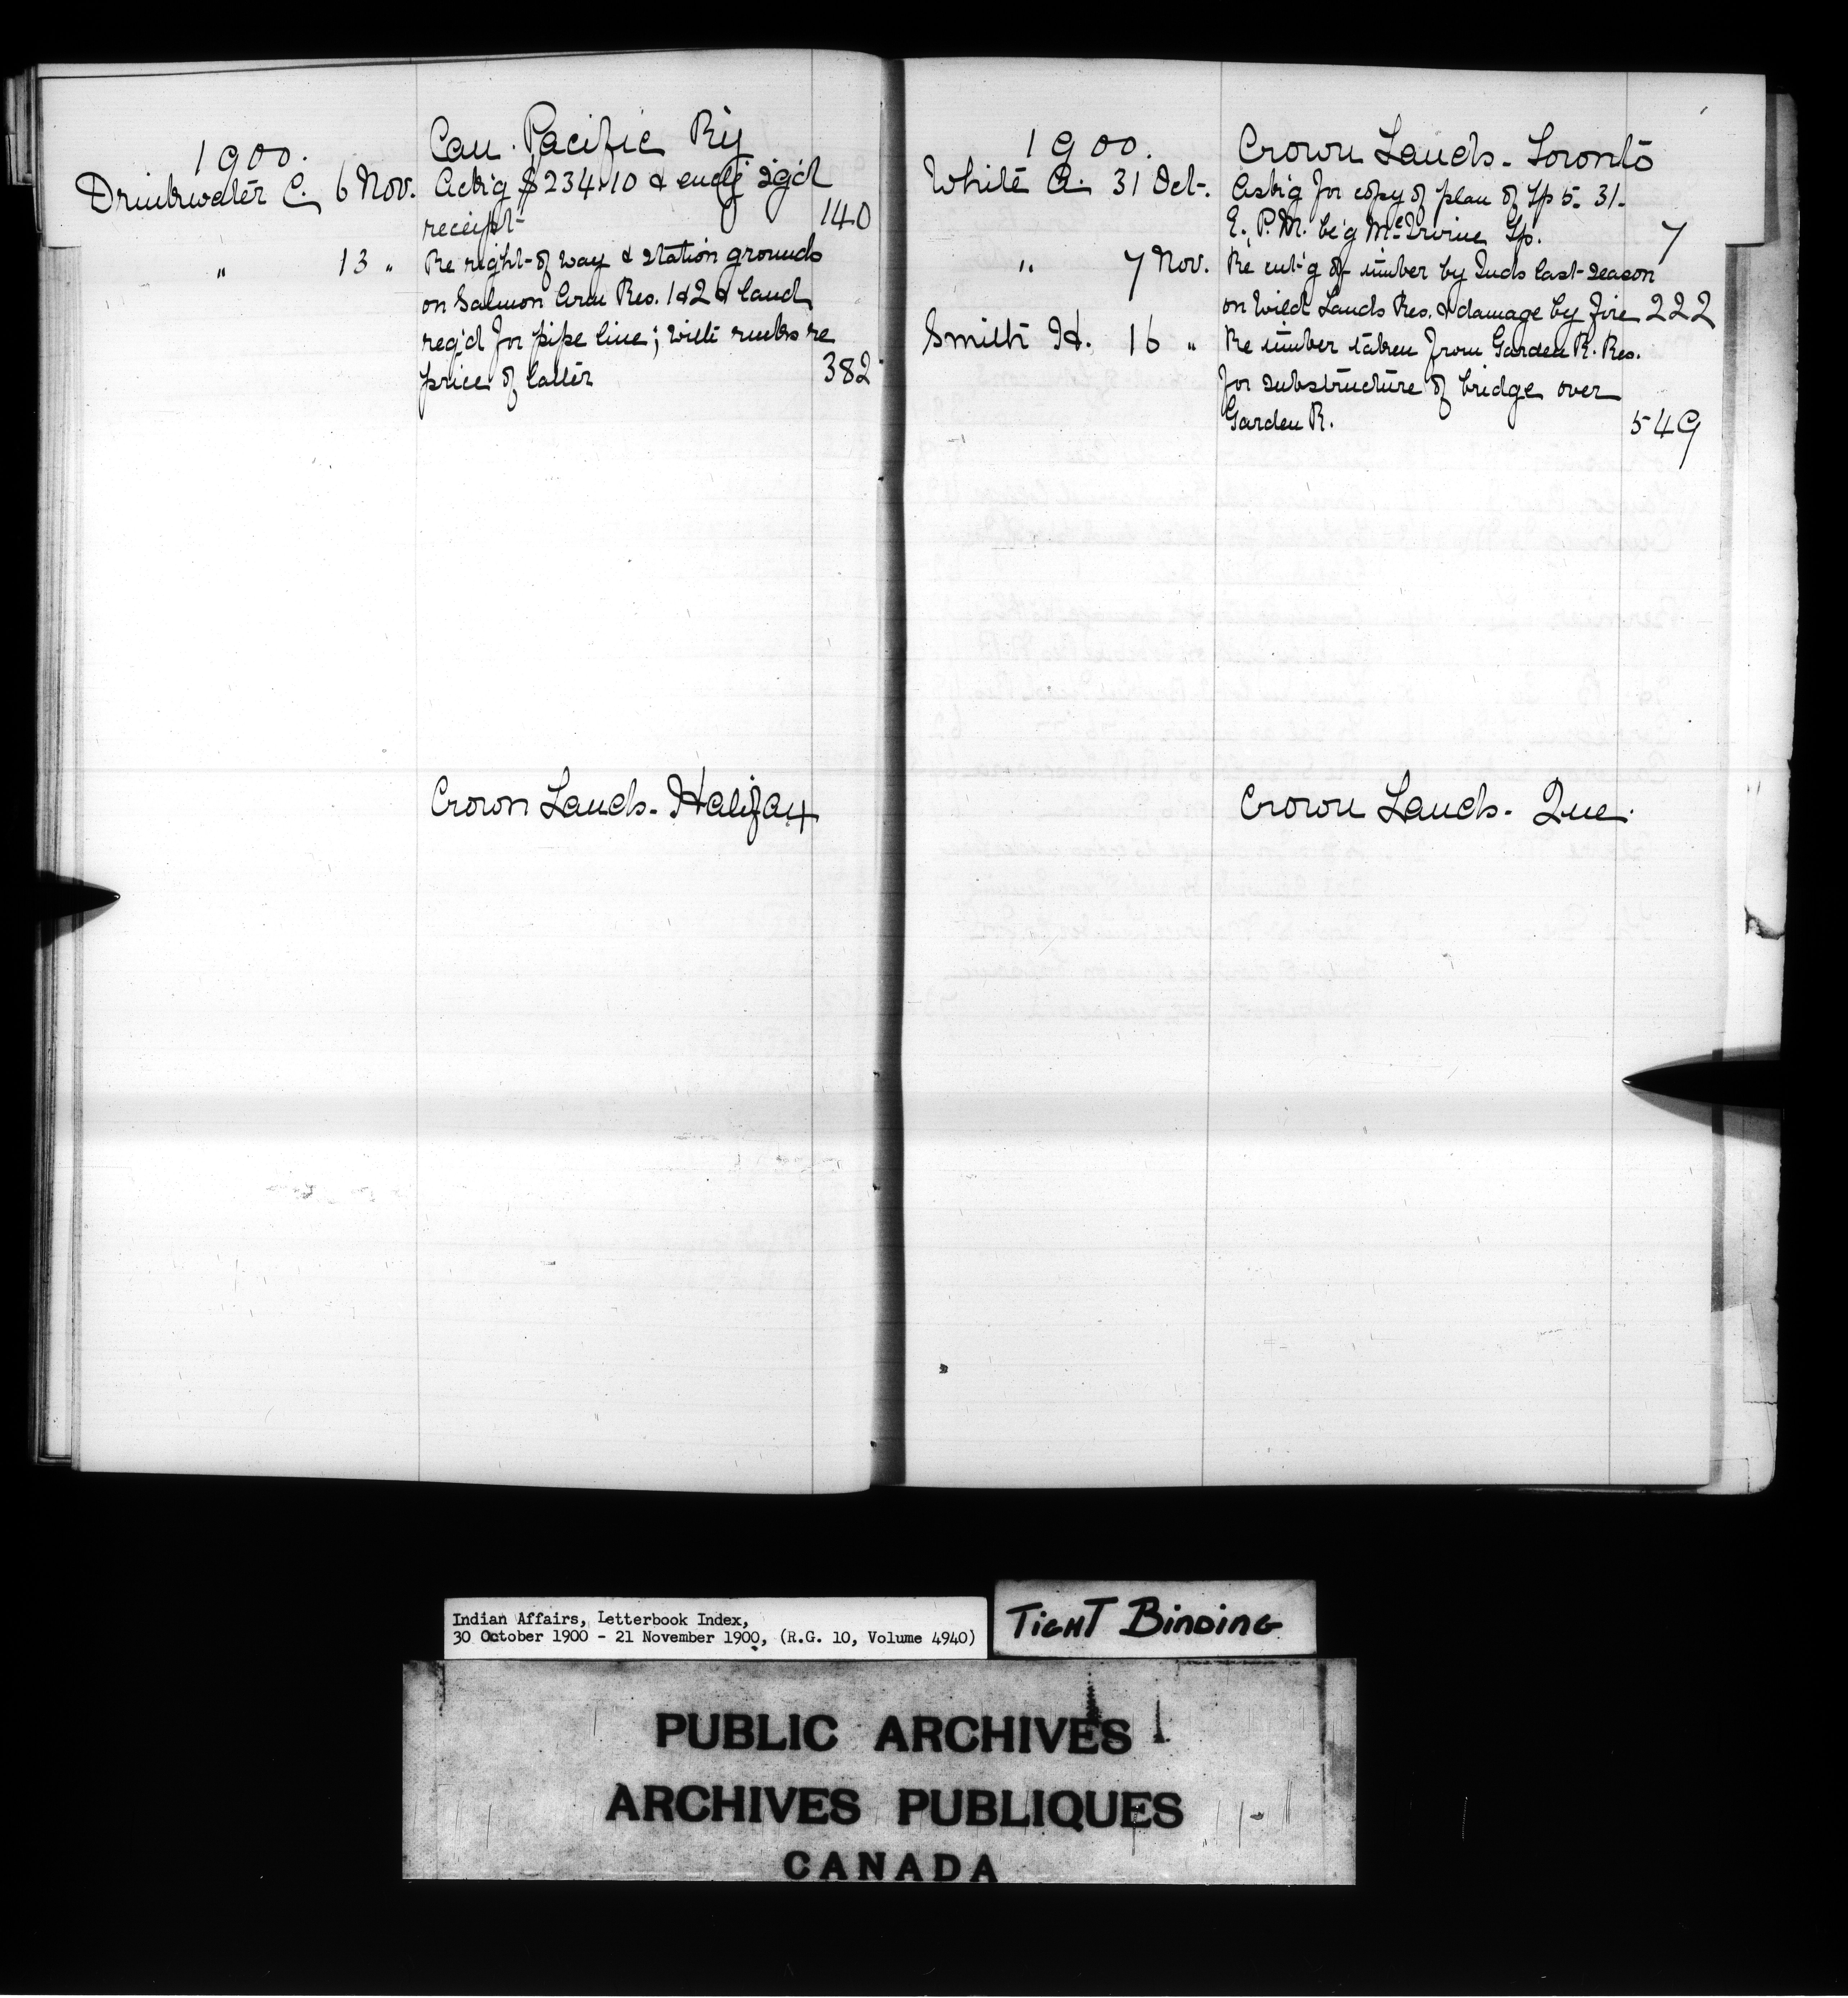 1900.
Can. Pacific Ry
Drinkwater C. 6 Nov. Ack'g $234.10 & encl'g sg'd
receipt 140
" 13 " Re right-of way & station grounds
on Salmon Arm Res. 1 & 2 & land
req'd for pipe line; with rmks re
price of latter 382
Crown Lands - Halifax
1900.
Crown Lands - Toronto
White A. 31 Oct. Ask'g for copy of plan of Tp 5. 31.
E. P. M. be'g McIrvine Tp. 7
" 7 Nov. Re cut'g of timber by Inds last season
on Wild Lands Res. & damage by fire 222
Smith H. 16 " Re timber taken from Garden R. Res.
for substructure of bridge over
Garden R. 549
Crown Lands - Que.
Indian Affairs, Letterbook Index,
30 October 1900 - 21 November 1900, (R.G. 10, Volume 4940)
TIGHT BINDING
PUBLIC ARCHIVES
ARCHIVES PUBLIQUES
CANADA